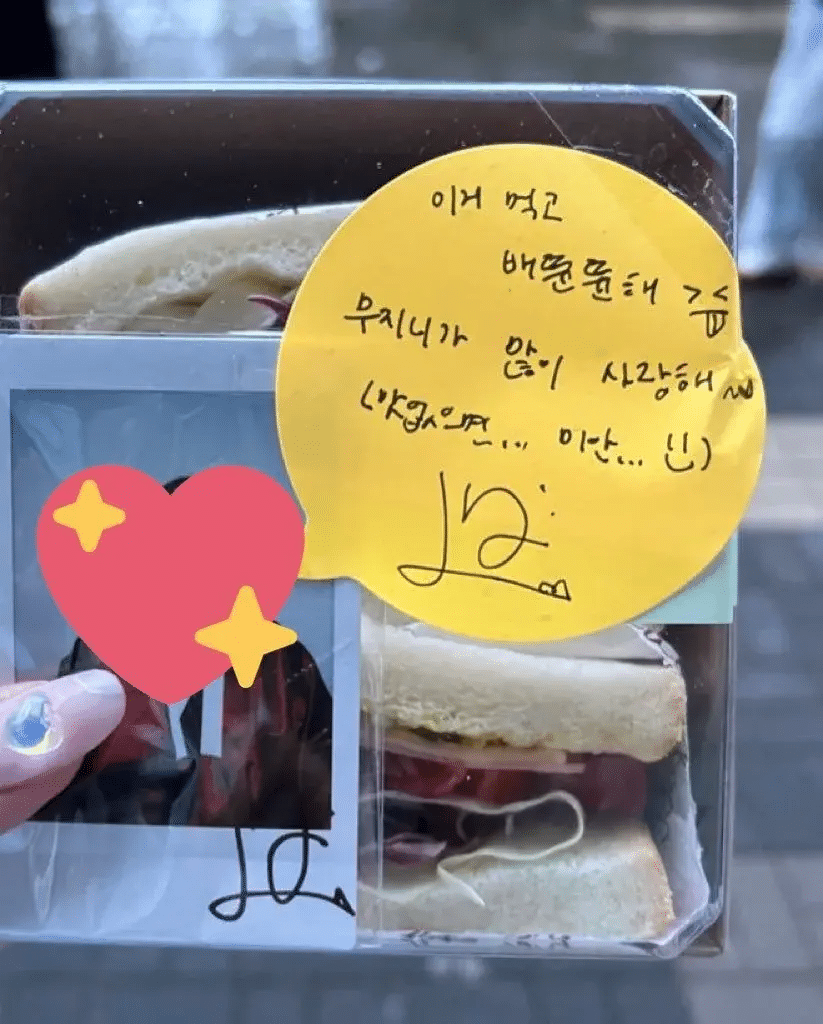 이거 먹고
배뚠뚠해 ><
우지니가 많이 사랑해
(맛없으면... 미안... ::)